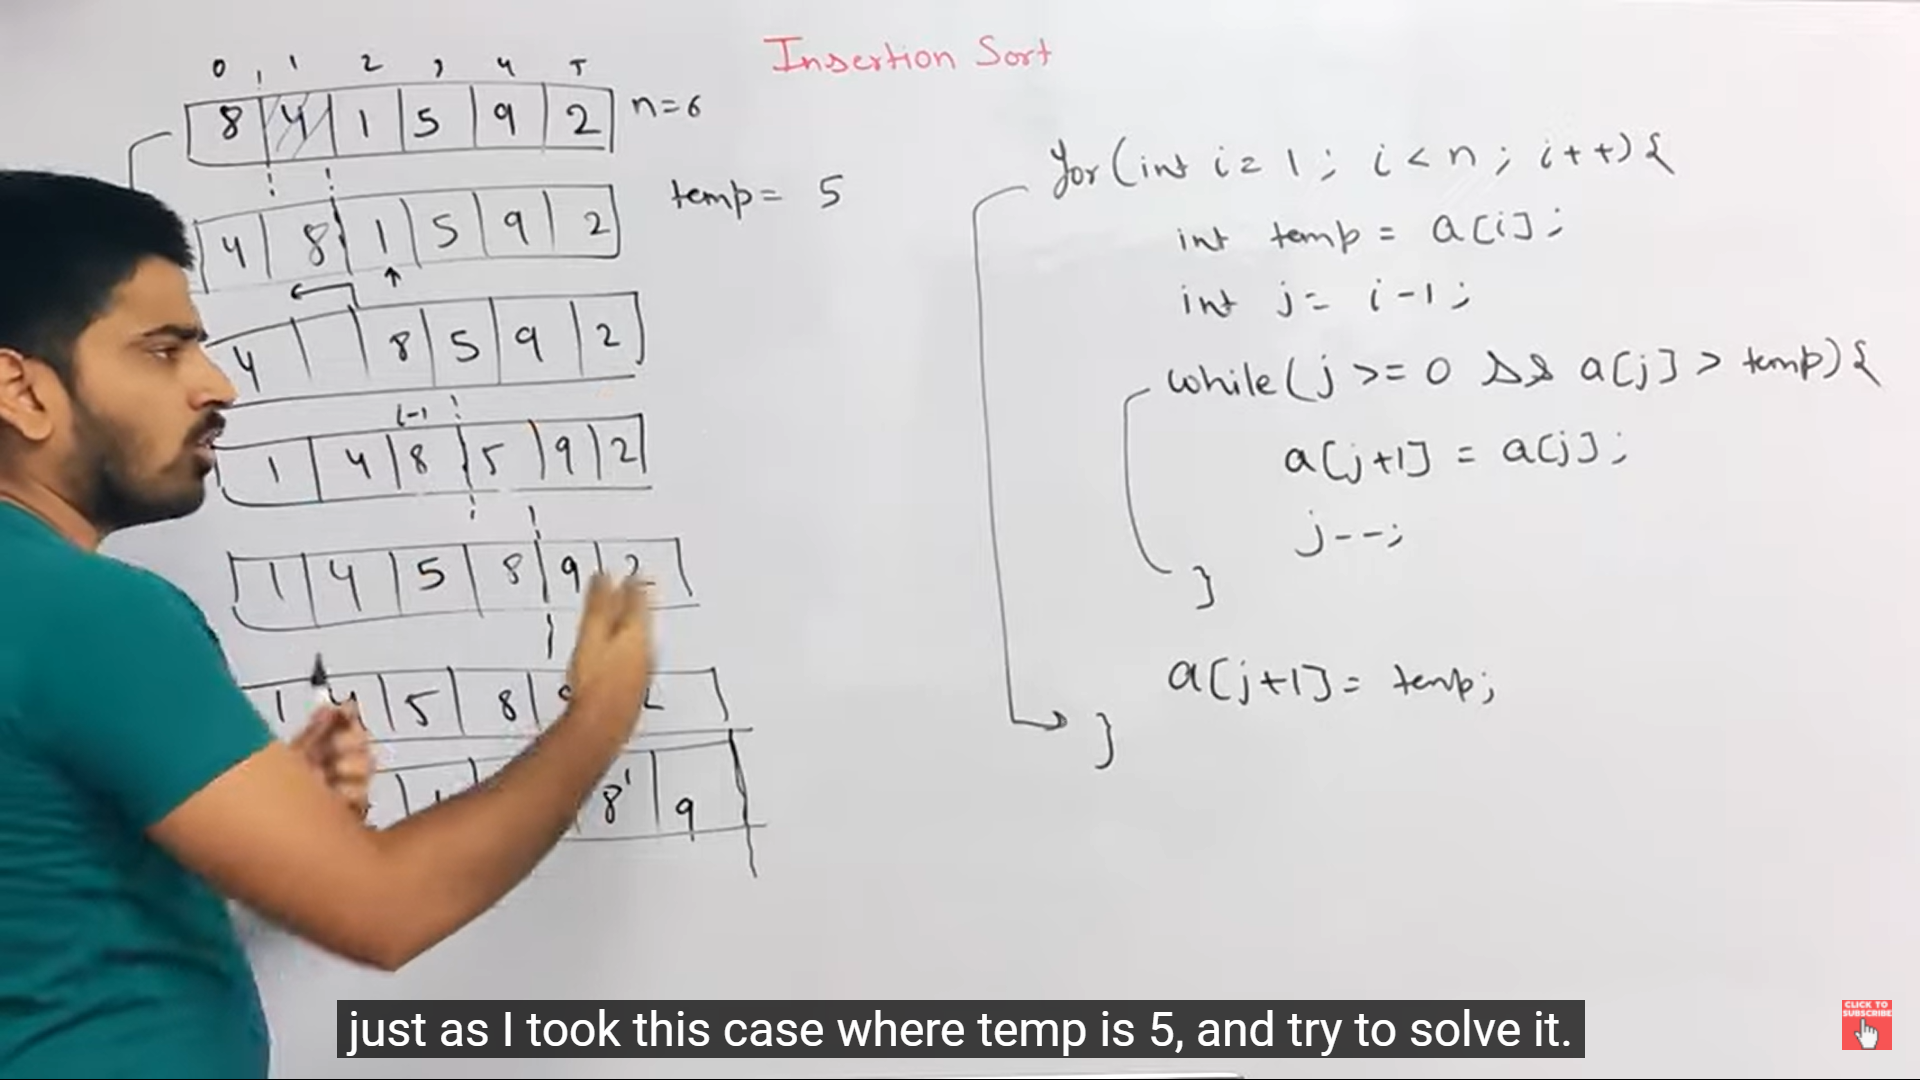 Insertion Sort
0 1 2 3 4 5
8 4 1 5 9 2 n=6
temp = 5
4 8 1 5 9 2
4 8 5 9 2
i-1
1 4 8 5 9 2
1 4 5 8 9 2
1 4 5 8
8 9
for(int i=1; i<n; i++){
int temp = a[i];
int j= i-1;
while(j >= 0 && a[j] > temp){
a[j+1] = a[j];
j--;
}
a[j+1]= temp;
}
just as I took this case where temp is 5, and try to solve it.
CLICK TO
SUBSCRIBE